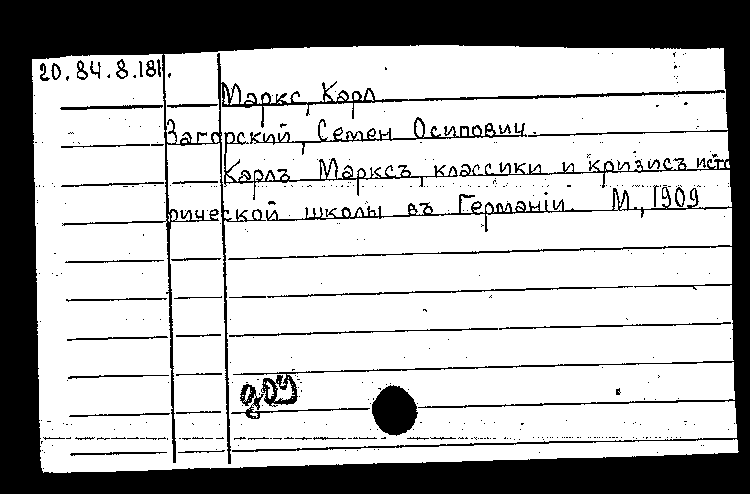 20.84.8.181.
Маркс, Карл
Загорский, Семен Осипович.
Карлъ Марксъ, классики и кризисъ исто
рической школы въ Германіи. М., 1909